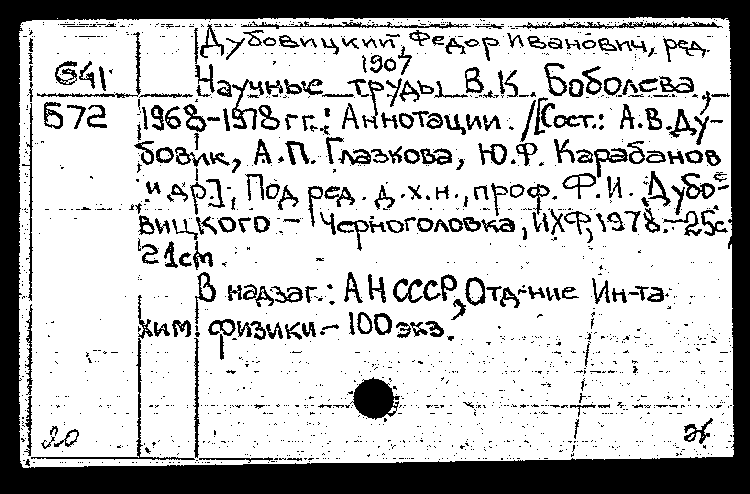 Дубовицкий, Федор Иванович, ред.
1907
541 Научные труды В.К. Боболева,
Б72 1968-1978 гг.: Аннотации. /[Сост.: А.В.Ду-
бовик, А.П. Глазкова, Ю.Ф. Карабанов
и др]; Под ред. д.х.н., проф. Ф.И. Дубо-
вицкого - Черноголовка, ИХФ, 1978.-25с;
21см.
В надзаг.: АН СССР, Отд-ние Ин-та
хим. физики.- 100 экз.
20